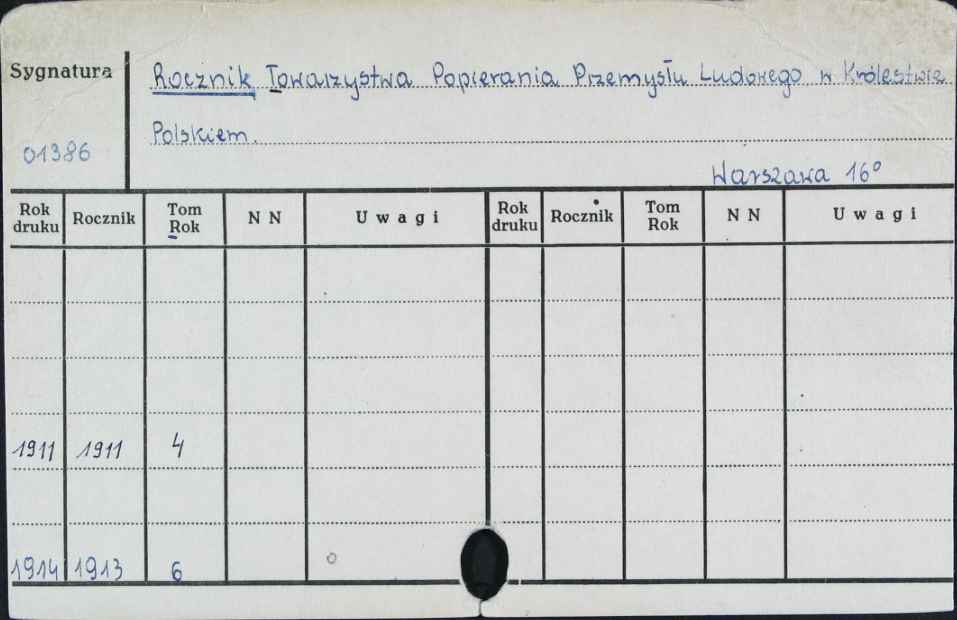 Sygnatura
Rocznik Towarzystwa Popierania Przemysłu Ludowego w Królestwie
Polskiem.
01386
Warszawa 16°
Rok druku Rocznik Tom Rok NN Uwagi Rok druku Rocznik Tom Rok NN Uwagi
1911 1911 4
1914 1913 6